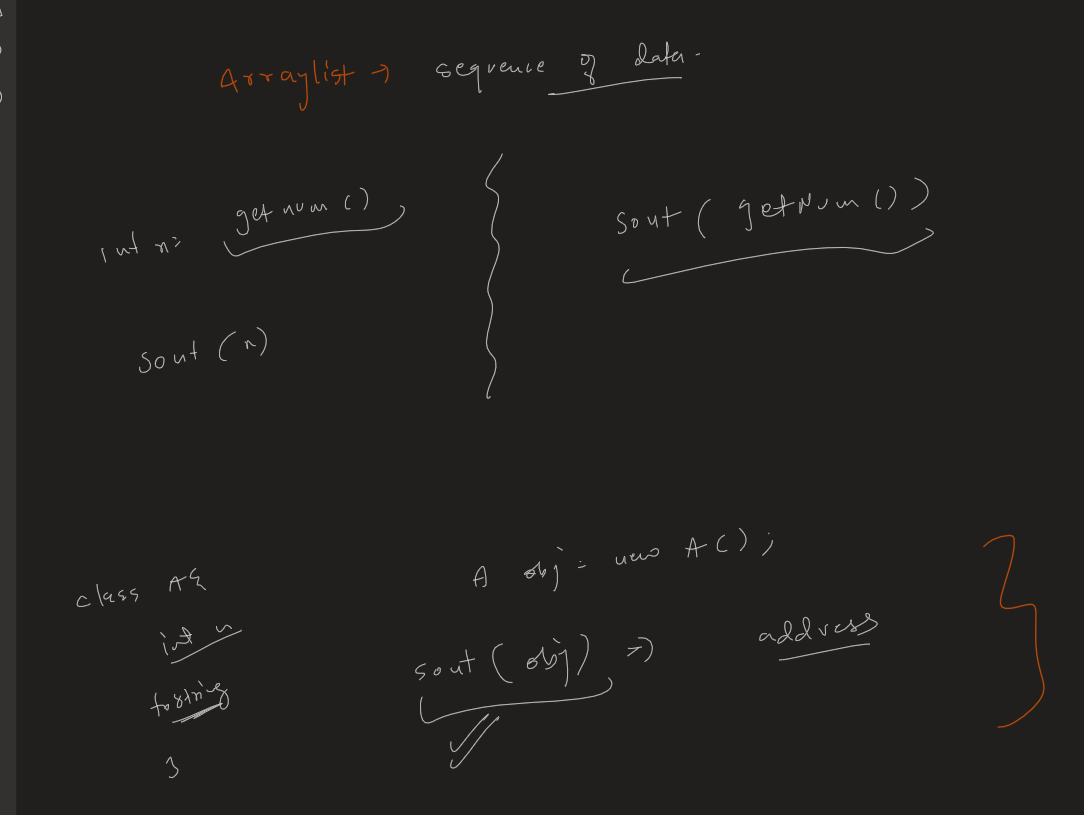 Arraylist → sequence of data.
int n= getnum()
sout (n)
sout ( getNum ())
class A{
int n
tostring
}
A obj = new A();
sout ( obj ) => address